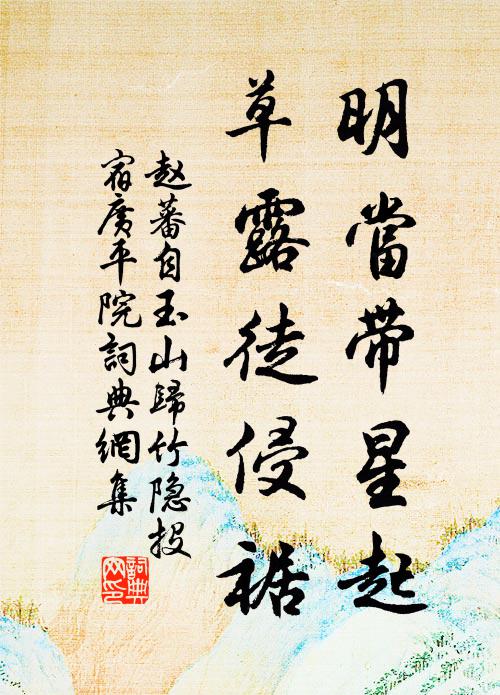 明當带星起
草露徒侵裾
赵蕃自玉山歸竹隐投
宿广平院詞典網集
詞典网印